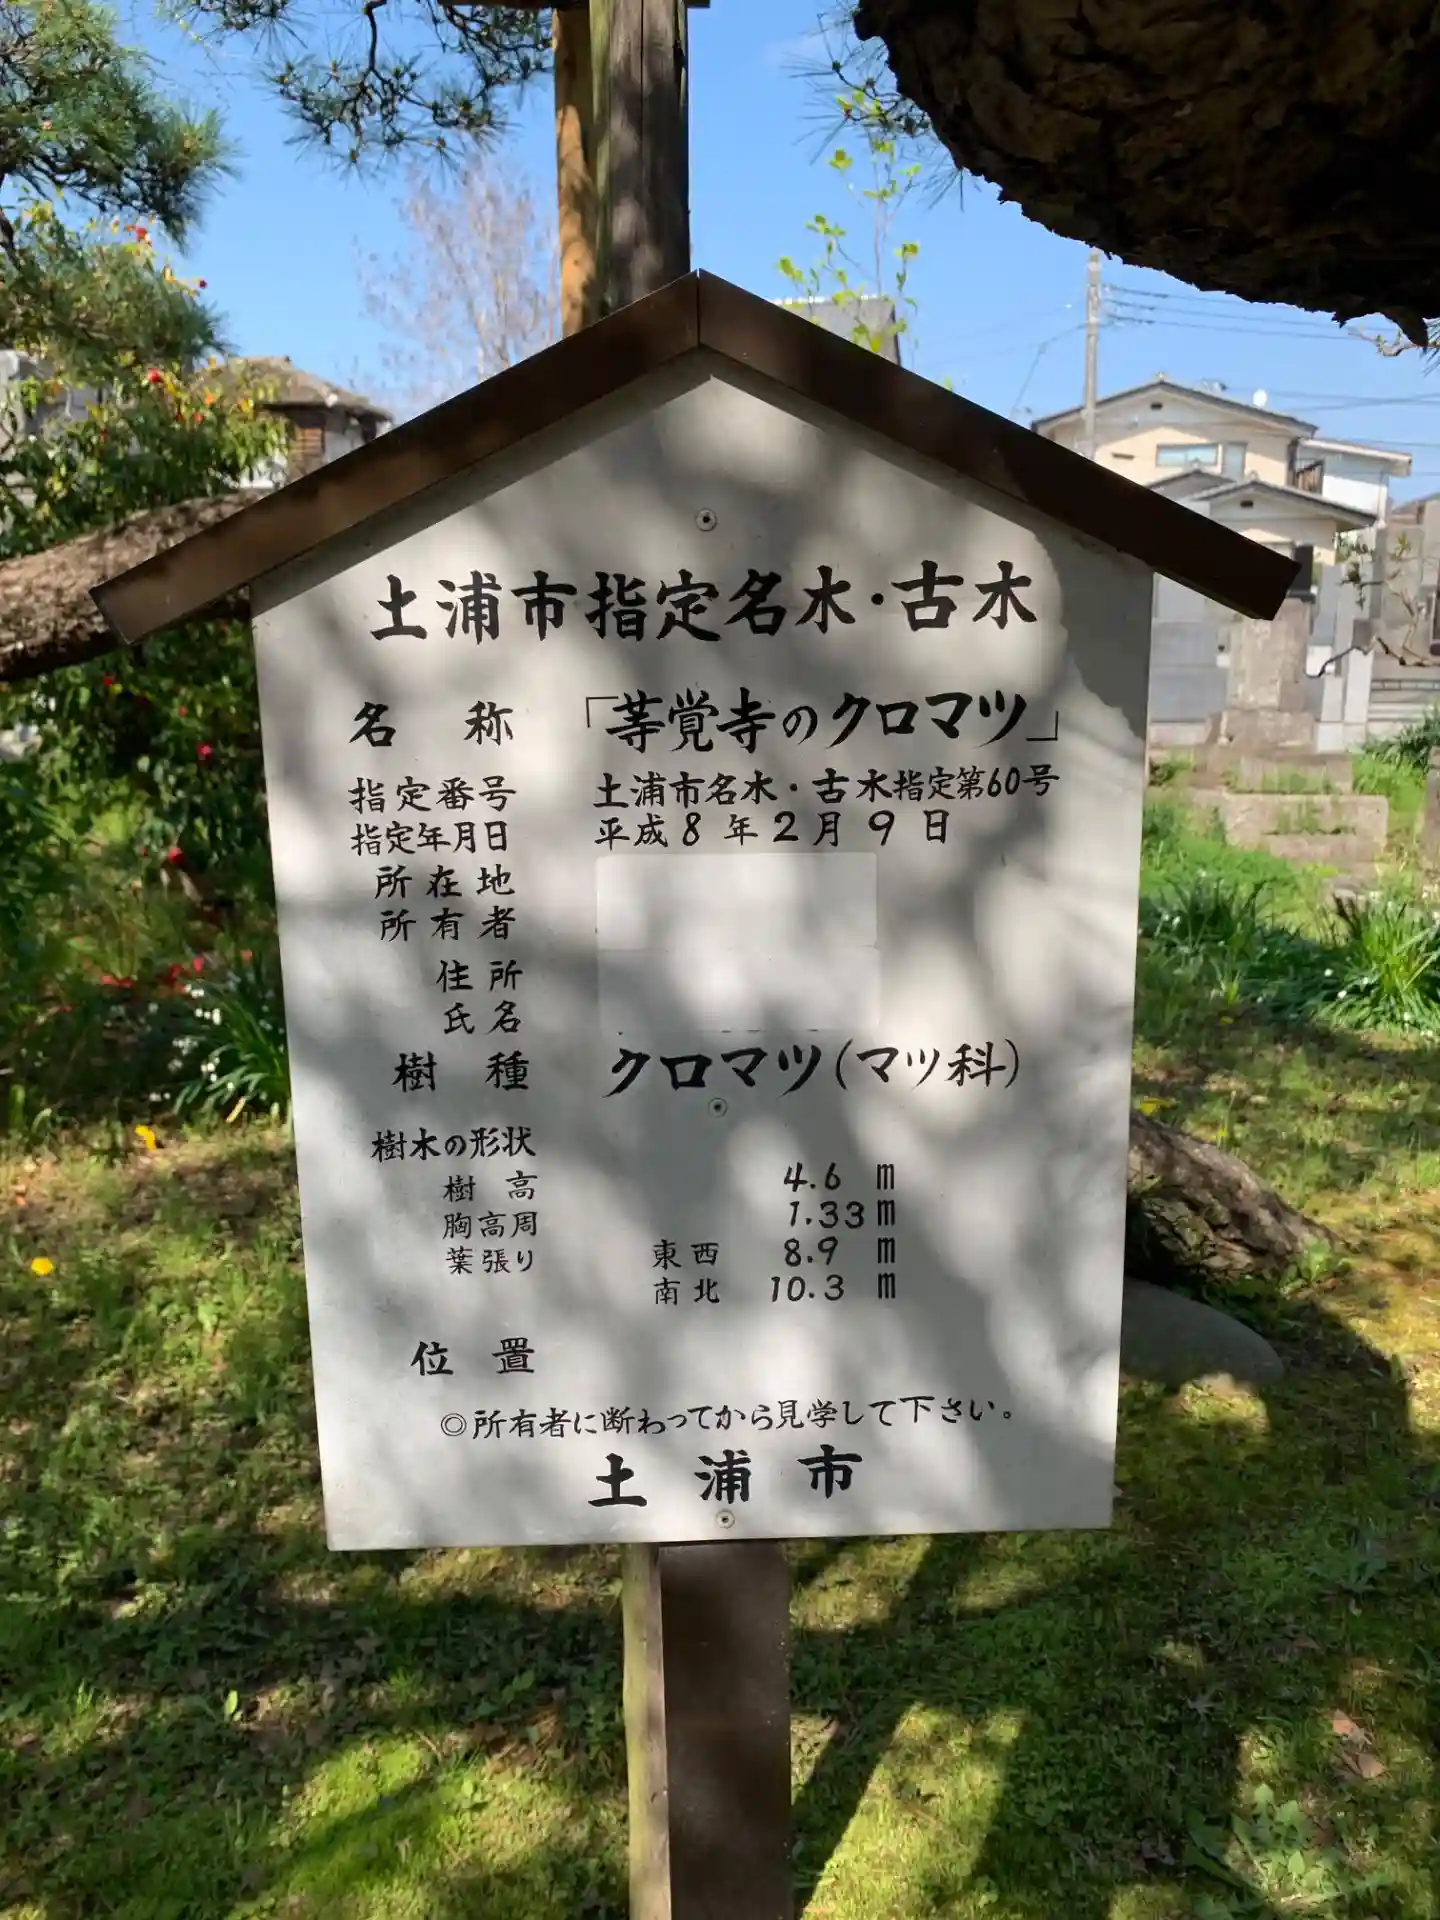 土浦市指定名木・古木
名称 「等覚寺のクロマツ」
指定番号 土浦市名木・古木指定第60号
指定年月日 平成8年2月9日
所在地
所有者
住所
氏名
樹種 クロマツ(マツ科)
樹木の形状
樹高 4.6 m
胸高周 1.33 m
葉張り 東西 8.9 m
南北 10.3 m
位置
◎所有者に断わってから見学して下さい。
土浦市